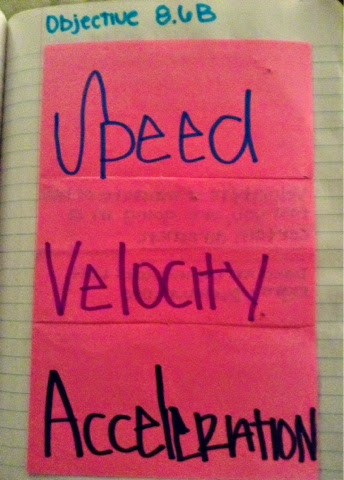 Objective 8.6B
Speed
Velocity
Acceleration